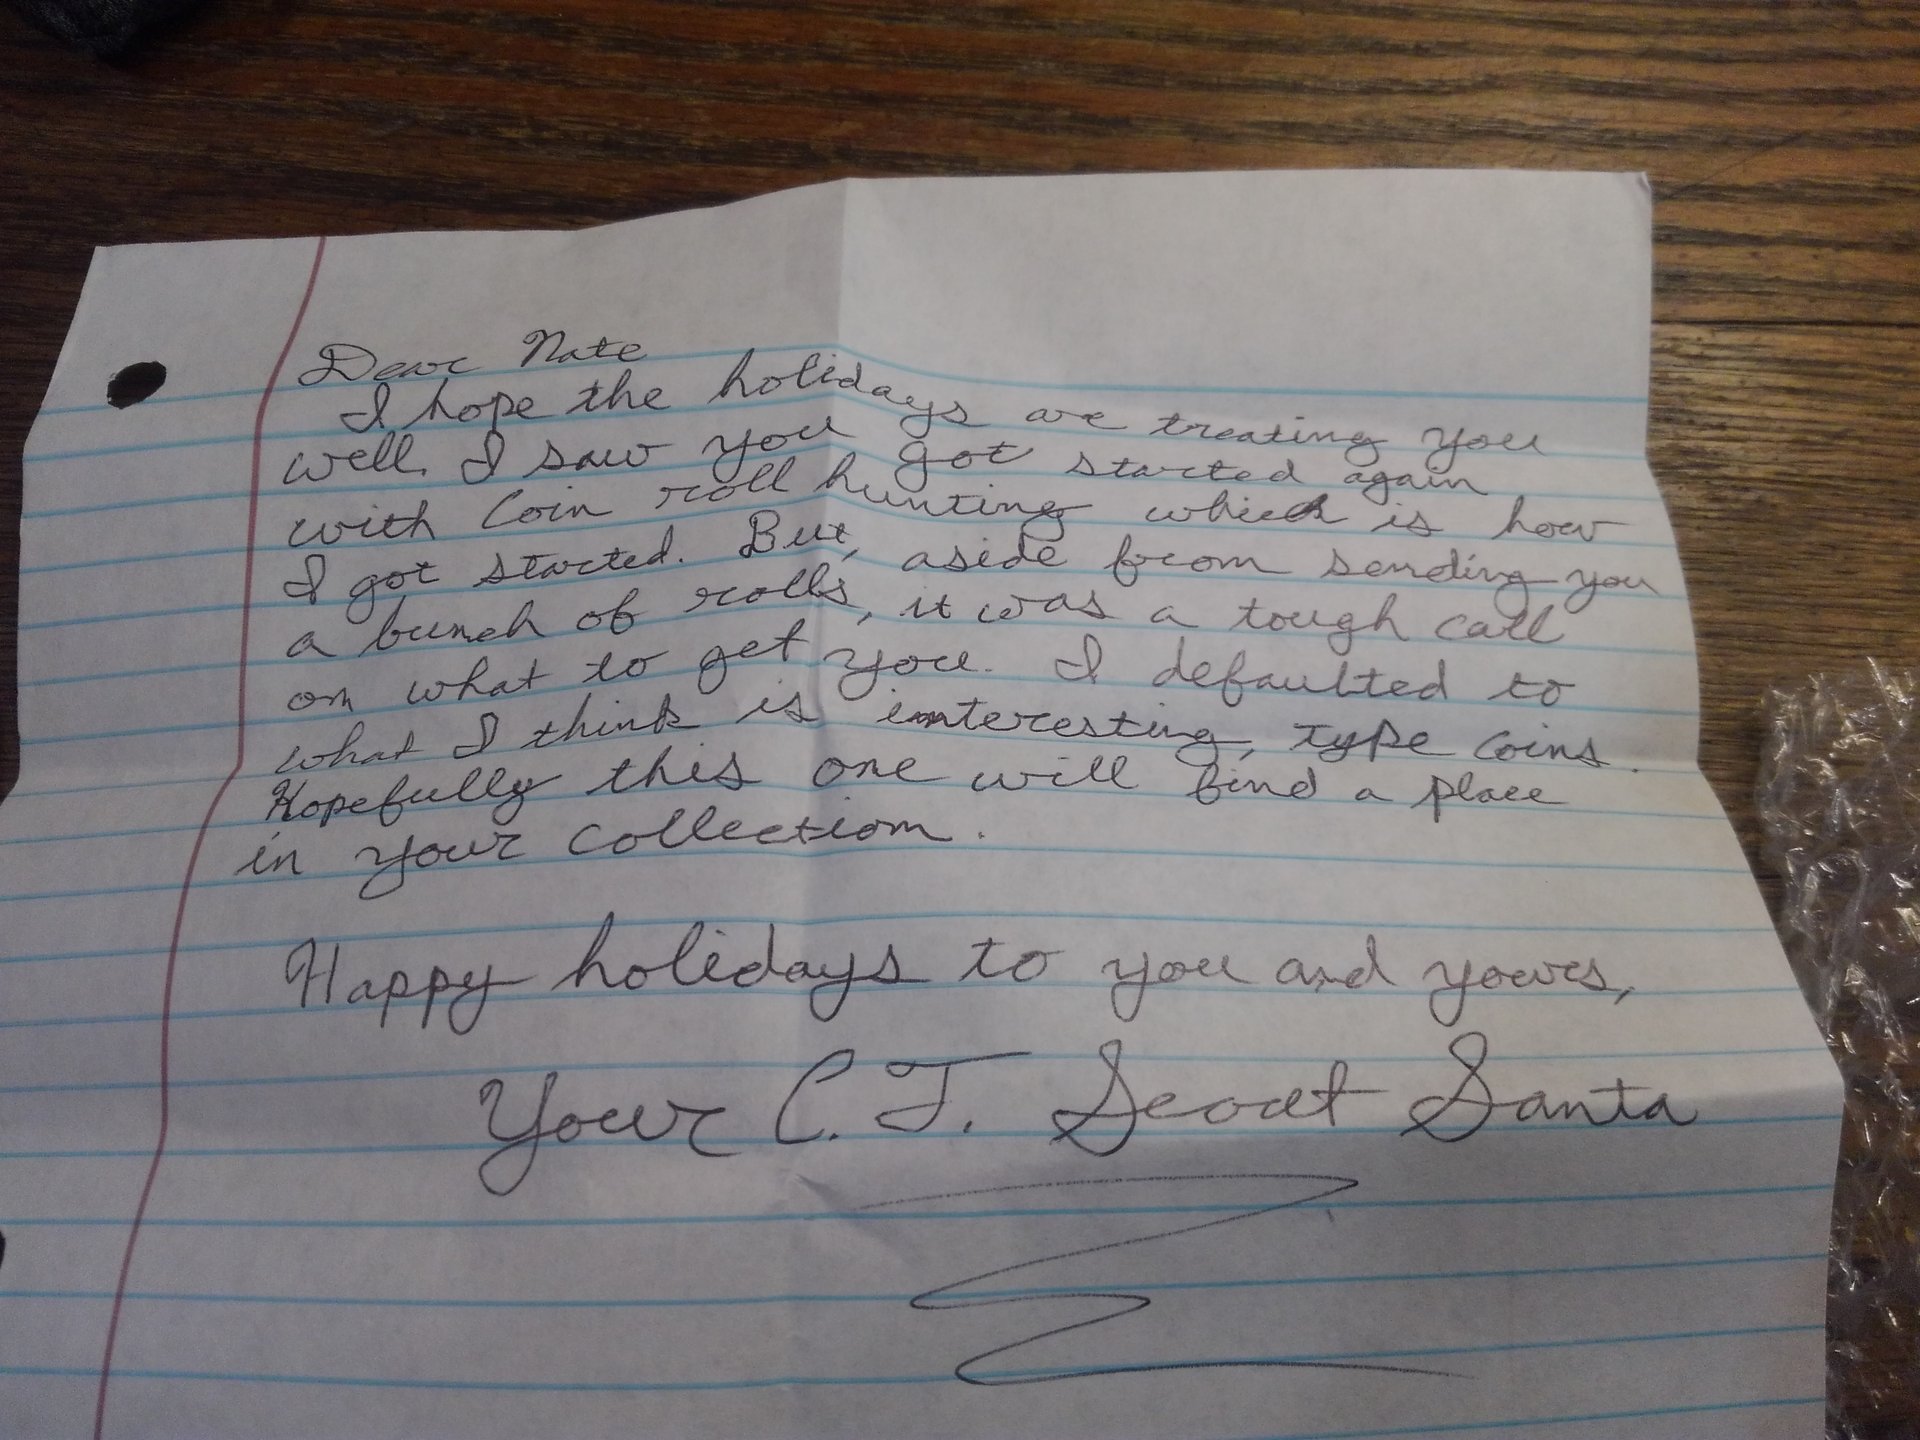 Dear Nate
I hope the holidays are treating you
well. I saw you got started again
with Coin roll hunting which is how
I got started. But, aside from sending you
a bunch of rolls, it was a tough call
on what to get you. I defaulted to
what I think is interesting, type coins.
Hopefully this one will find a place
in your collection.
Happy holidays to you and yours,
Your C.T. Secret Santa